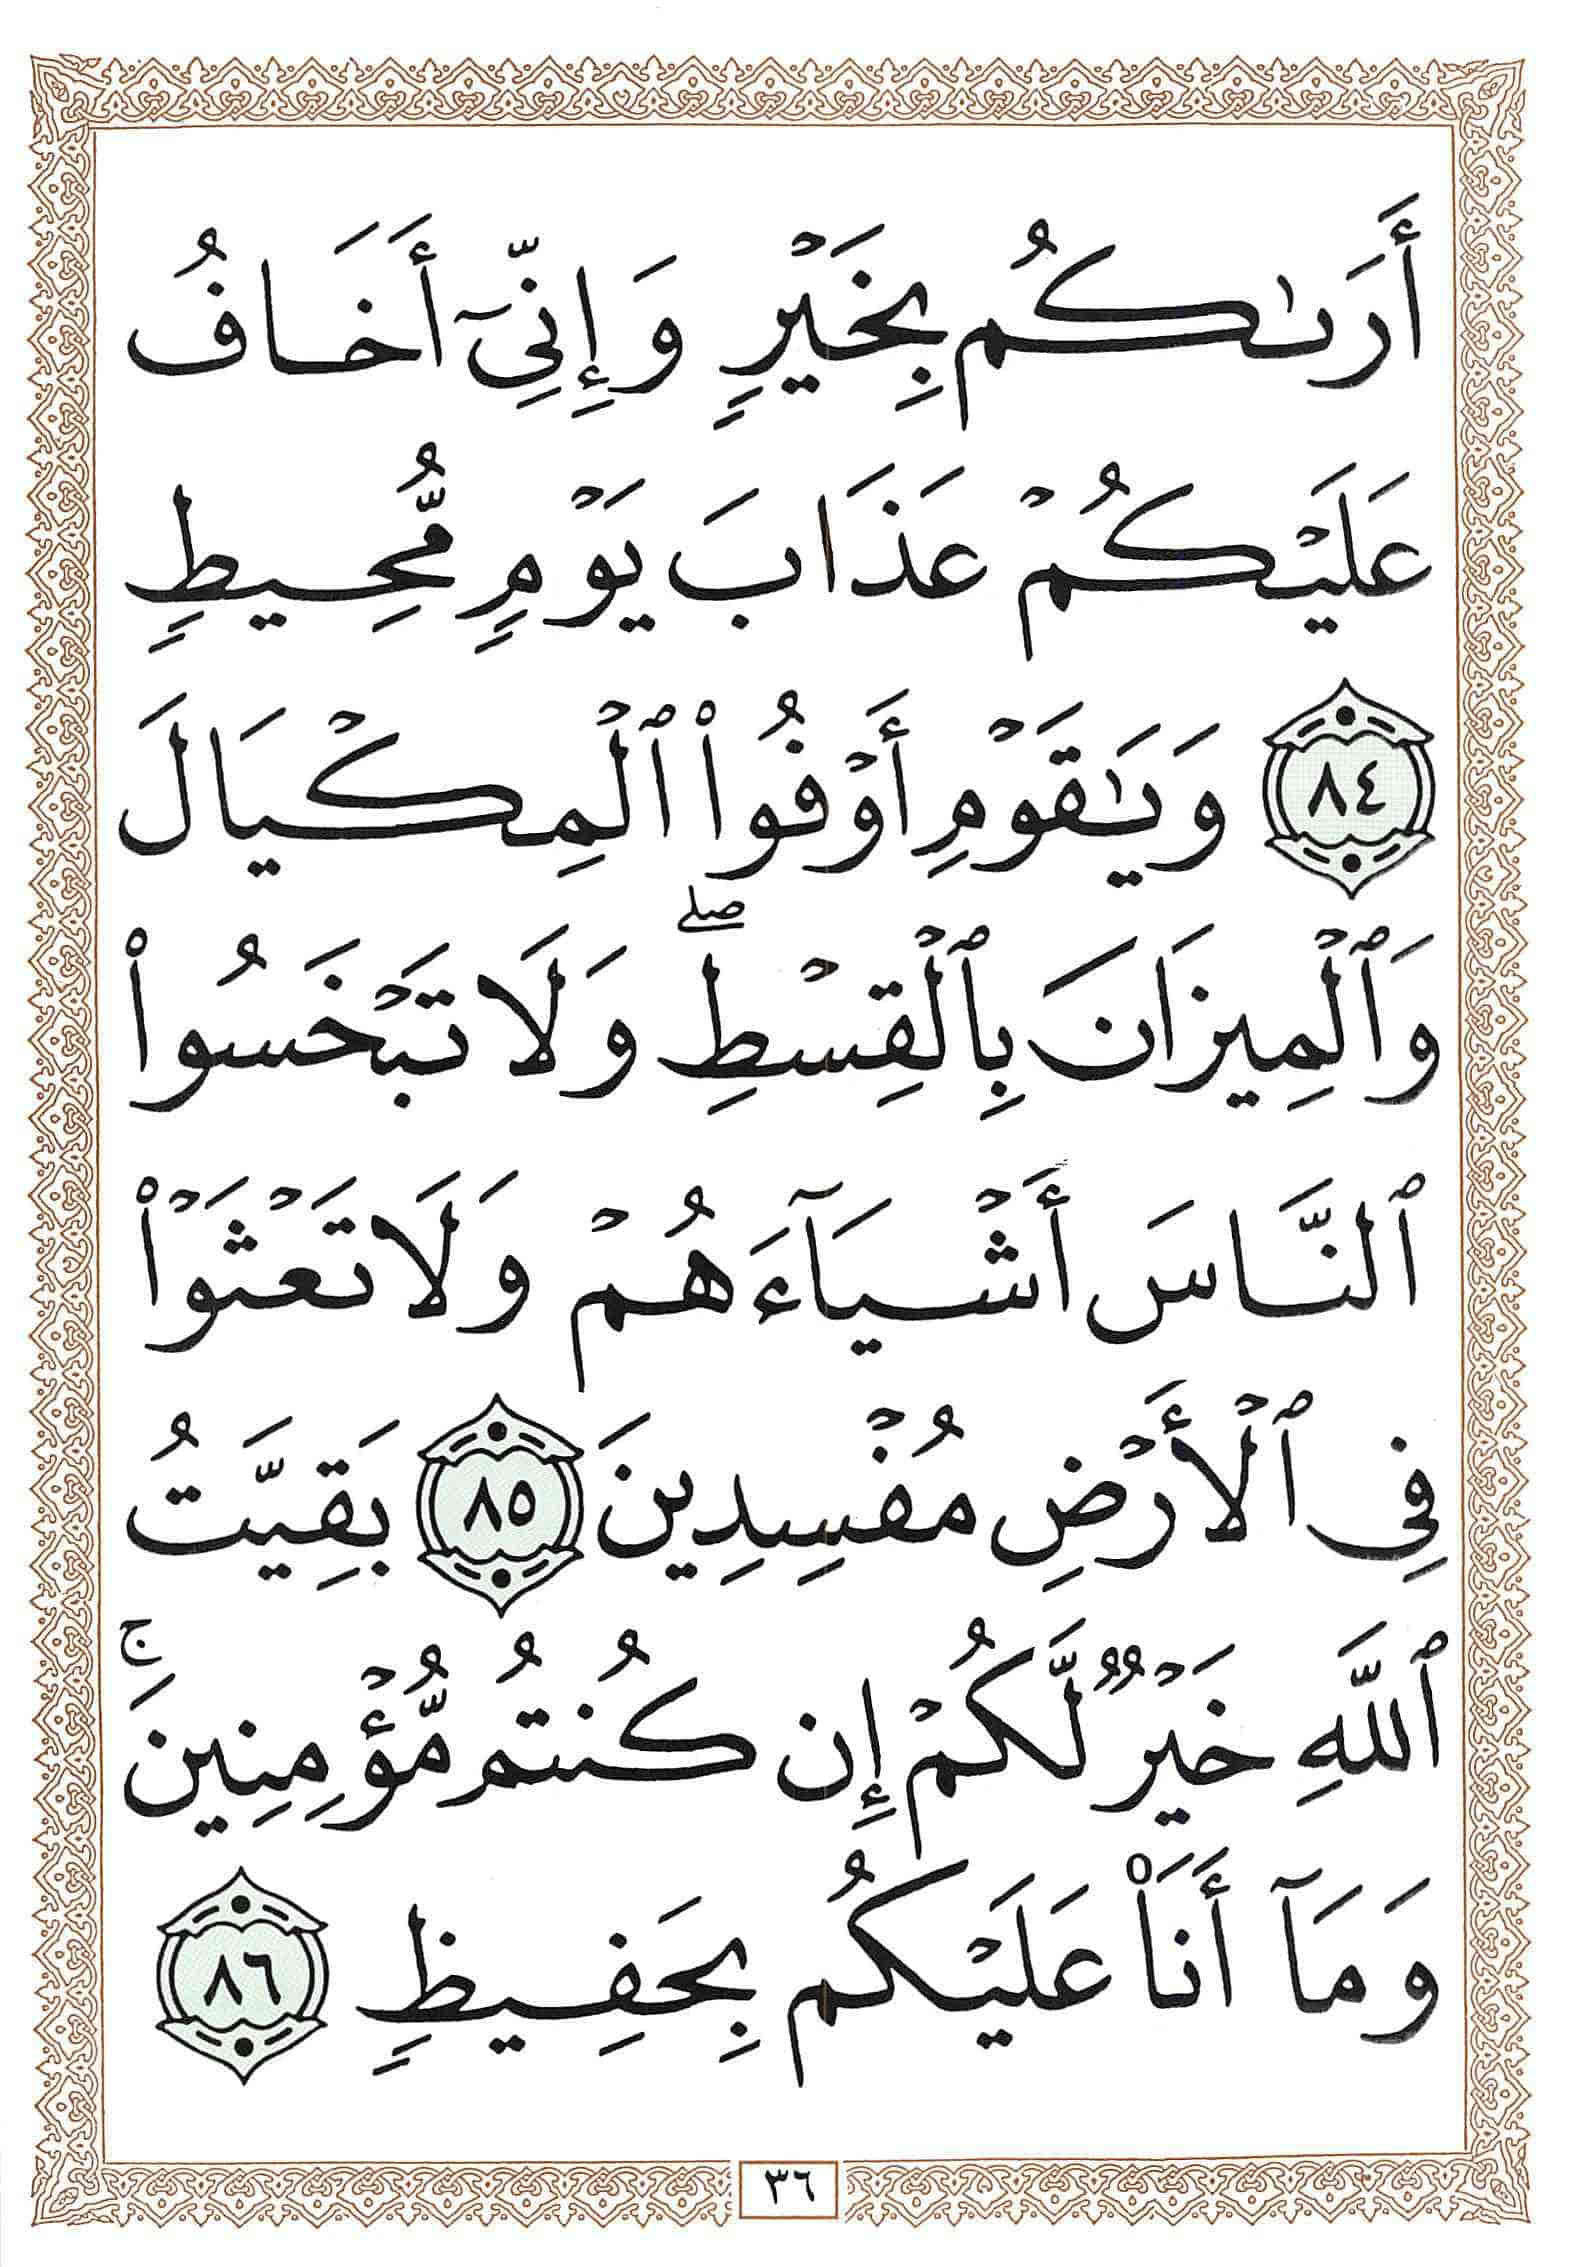 أَرَىٰكُم بِخَيْرٍ وَإِنِّىٓ أَخَافُ
عَلَيْكُمْ عَذَابَ يَوْمٍ مُّحِيطٍ
٨٤ وَيَٰقَوْمِ أَوْفُوا۟ ٱلْمِكْيَالَ
وَٱلْمِيزَانَ بِٱلْقِسْطِ ۖ وَلَا تَبْخَسُوا۟
ٱلنَّاسَ أَشْيَآءَهُمْ وَلَا تَعْثَوْا۟
فِى ٱلْأَرْضِ مُفْسِدِينَ ٨٥ بَقِيَّتُ
ٱللَّهِ خَيْرٌ لَّكُمْ إِن كُنتُم مُّؤْمِنِينَ ۚ
وَمَآ أَنَا۠ عَلَيْكُم بِحَفِيظٍ ٨٦
٣٦